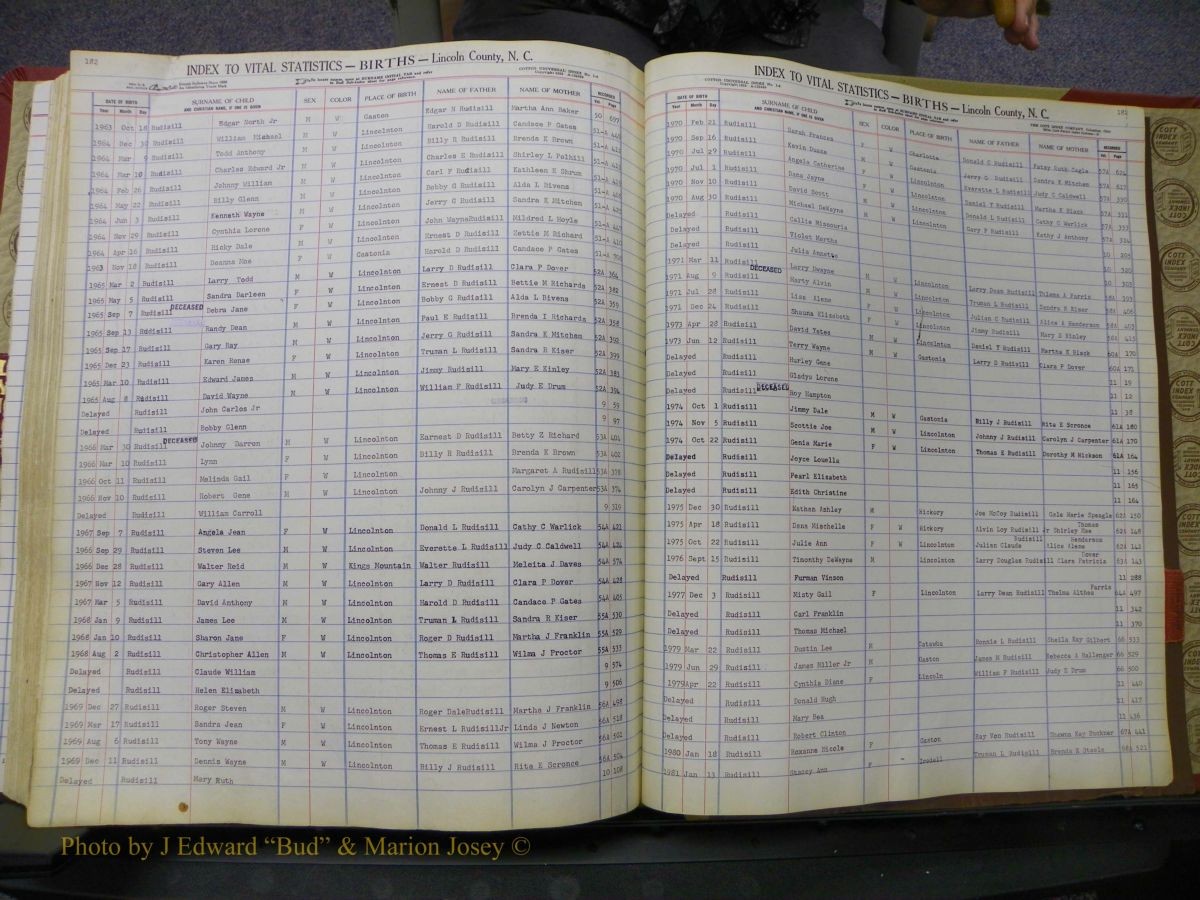 182
INDEX TO VITAL STATISTICS — BIRTHS — Lincoln County, N. C.
COTTON UNIVERSAL INDEX No. 1-6
DATE OF BIRTH SURNAME OF CHILD AND CHRISTIAN NAME, IF ONE IS GIVEN SEX COLOR PLACE OF BIRTH NAME OF FATHER NAME OF MOTHER RECORDED
Year Month Day Vol. Page
1963 Oct 18 Rudisill Edgar North Jr M W Gaston Edgar N Rudisill Martha Ann Baker 50 697
1964 Dec 30 Rudisill William Michael M W Lincolnton Harold D Rudisill Candace P Gates 51-A
1964 Mar 9 Rudisill Todd Anthony M W Lincolnton Billy R Rudisill Brenda K Brown 51-A
1964 Mar 10 Rudisill Charles Edward Jr M W Lincolnton Charles E Rudisill Shirley L Polhill 51-A
1964 Feb 26 Rudisill Johnny William M W Lincolnton Carl F Rudisill Kathleen H Shrum 51-A
1964 May 22 Rudisill Billy Glenn M W Lincolnton Bobby G Rudisill Alda L Bivens 51-A
1964 Jun 3 Rudisill Kenneth Wayne M W Lincolnton Jerry G Rudisill Sandra K Mitchem 51-A
1964 Nov 29 Rudisill Cynthia Lorene F W Lincolnton John WayneRudisill Mildred L Hoyle 51-A
1964 Apr 16 Rudisill Ricky Dale M W Lincolnton Ernest D Rudisill Zettie M Richard 51-A
1963 Nov 18 Rudisill Deanna Mae F W Gastonia Harold D Rudisill Candace P Gates 51-A
1965 Mar 2 Rudisill Larry Todd M W Lincolnton Larry D Rudisill Clara P Dover 52A 364
1965 May 5 Rudisill Sandra Darleen F W Lincolnton Ernest D Rudisill Bettie M Richards 52A 382
1965 Sep 7 Rudisill DECEASED Debra Jane F W Lincolnton Bobby G Rudisill Alda L Bivens 52A 359
1965 Sep 13 Rudisill Randy Dean M W Lincolnton Paul E Rudisill Brenda I Richards 52A 358
1965 Sep 17 Rudisill Gary Ray M W Lincolnton Jerry G Rudisill Sandra K Mitchem 52A 392
1965 Dec 23 Rudisill Karen Renae F W Lincolnton Truman L Rudisill Sandra R Kiser 52A 399
1965 Mar 10 Rudisill Edward James M W Lincolnton Jimmy Rudisill Mary E Kinley 52A 383
1965 Aug 8 Rudisill David Wayne M W Lincolnton William F Rudisill Judy E Drum 52A 394
Delayed Rudisill John Carlos Jr 9 59
Delayed Rudisill Bobby Glenn 9 97
1966 Mar 30 Rudisill DECEASED Johnny Darron M W Lincolnton Earnest D Rudisill Betty Z Richard 53A 404
1966 Mar 10 Rudisill Lynn F W Lincolnton Billy R Rudisill Brenda K Brown 53A 402
1966 Oct 11 Rudisill Melinda Gail F W Lincolnton Margaret A Rudisill 53A 378
1966 Nov 10 Rudisill Robert Gene M W Lincolnton Johnny J Rudisill Carolyn J Carpenter 53A 374
Delayed Rudisill William Carroll 9 319
1967 Sep 7 Rudisill Angela Jean F W Lincolnton Donald L Rudisill Cathy C Warlick 54A 421
1966 Sep 29 Rudisill Steven Lee M W Lincolnton Everette L Rudisill Judy C Caldwell 54A 424
1966 Dec 28 Rudisill Walter Reid M W Kings Mountain Walter Rudisill Meleita J Daves 54A 574
1967 Nov 12 Rudisill Gary Allen M W Lincolnton Larry D Rudisill Clara P Dover 54A 428
1967 Mar 5 Rudisill David Anthony M W Lincolnton Harold D Rudisill Candace P Gates 54A 405
1968 Jan 9 Rudisill James Lee M W Lincolnton Truman L Rudisill Sandra R Kiser 55A 530
1968 Jan 10 Rudisill Sharon Jane F W Lincolnton Roger D Rudisill Martha J Franklin 55A 529
1968 Aug 2 Rudisill Christopher Allen M W Lincolnton Thomas E Rudisill Wilma J Proctor 55A 533
Delayed Rudisill Claude William 9 574
Delayed Rudisill Helen Elizabeth 9 506
1969 Dec 27 Rudisill Roger Steven M W Lincolnton Roger DaleRudisill Martha J Franklin 56A 498
1969 Mar 17 Rudisill Sandra Jean F W Lincolnton Ernest L RudisillJr Linda J Newton 56A 518
1969 Aug 6 Rudisill Tony Wayne M W Lincolnton Thomas E Rudisill Wilma J Proctor 56A 501
1969 Dec 11 Rudisill Dennis Wayne M W Lincolnton Billy J Rudisill Rita E Scronce 56A 504
Delayed Rudisill Mary Ruth 10 108
INDEX TO VITAL STATISTICS — BIRTHS — Lincoln County, N. C.
COTTON UNIVERSAL INDEX No. 1-6
DATE OF BIRTH SURNAME OF CHILD AND CHRISTIAN NAME, IF ONE IS GIVEN SEX COLOR PLACE OF BIRTH NAME OF FATHER NAME OF MOTHER RECORDED
Year Month Day Vol. Page
1970 Feb 21 Rudisill Sarah Frances F W Charlotte Donald C Rudisill Patsy Ruth Cagle 57A 624
1970 Sep 16 Rudisill Kevin Duane M W Gastonia Jerry G Rudisill Sandra K Mitchem 57A 617
1970 Jul 29 Rudisill Angela Catherine F W Lincolnton Everette L Rudisill Judy C Caldwell 57A 330
1970 Jul 1 Rudisill Dana Jayne F W Lincolnton Daniel Y Rudisill Martha K Black 57A 331
1970 Nov 10 Rudisill David Scott M W Lincolnton Donald L Rudisill Cathy C Warlick 57A 353
1970 Aug 30 Rudisill Michael DeWayne M W Lincolnton Gary F Rudisill Kathy J Anthony 57A 314
Delayed Rudisill Callie Missouria 10 205
Delayed Rudisill Violet Martha 10 320
Delayed Rudisill Julia Annette 10 303
1971 Mar 11 Rudisill DECEASED Larry Dwayne M W Lincolnton Larry Dean Rudisill Thelma A Farris 58A 393
1971 Aug 9 Rudisill Marty Alvin M W Lincolnton Truman L Rudisill Sandra R Kiser 58A 406
1971 Jul 28 Rudisill Lisa Alene F W Lincolnton Julian C Rudisill Alice A Henderson 58A 403
1971 Dec 24 Rudisill Shauna Elizabeth F W Lincolnton Jimmy Rudisill Mary E Kinley 58A 415
1973 Apr 28 Rudisill David Yates M W Lincolnton Daniel Y Rudisill Martha K Black 60A 170
1973 Jun 12 Rudisill Terry Wayne M W Gastonia Larry D Rudisill Clara P Dover 60A 171
Delayed Rudisill Hurley Gene 11 19
Delayed Rudisill Gladys Lorene 11 12
Delayed Rudisill DECEASED Roy Hampton 11 38
1974 Oct 1 Rudisill Jimmy Dale M W Gastonia Billy J Rudisill Rita E Scronce 61A 180
1974 Nov 5 Rudisill Scottie Joe M W Lincolnton Johnny J Rudisill Carolyn J Carpenter 61A 170
1974 Oct 22 Rudisill Genia Marie F W Lincolnton Thomas E Rudisill Dorothy M Hickson 61A 164
Delayed Rudisill Joyce Louella 11 156
Delayed Rudisill Pearl Elizabeth 11 165
Delayed Rudisill Edith Christine 11 164
1975 Dec 30 Rudisill Nathan Ashley M Hickory Joe McCoy Rudisill Gale Marie Speagle 62A 150
1975 Apr 18 Rudisill Dana Mischelle F W Hickory Alvin Loy Rudisill Jr Shirley Mae Thomas 62A 148
1975 Oct 22 Rudisill Julie Ann F W Lincolnton Julian Claude Rudisill Alice Alene Henderson 62A 142
1976 Sept 15 Rudisill Timonthy DeWayne M Lincolnton Larry Douglas Rudisill Clara Patricia Dover 63A 143
Delayed Rudisill Furman Vinson 11 288
1977 Dec 3 Rudisill Misty Gail F Lincolnton Larry Dean Rudisill Thelma Althea Farris 64A 497
Delayed Rudisill Carl Franklin 11 342
Delayed Rudisill Thomas Michael 11 370
1979 Mar 22 Rudisill Dustin Lee M Catawba Ronnie L Rudisill Sheila Kay Gilbert 66 333
1979 Jun 29 Rudisill James Miller Jr M Gaston James M Rudisill Rebecca A Ballenger 66 329
1979 Apr 22 Rudisill Cynthia Diane F Lincoln William F Rudisill Judy E Drum 66 300
Delayed Rudisill Donald Hugh 11 440
Delayed Rudisill Mary Bea 11 417
Delayed Rudisill Robert Clinton 11 436
1980 Jan 18 Rudisill Roxanne Nicole F Gaston Ray Von Rudisill Shawna Kay Buckner 67A 441
1981 Jan 13 Rudisill Stacey Ann F Iredell Truman L Rudisill Brenda K Steele 68A 521
COTT INDEX COMPANY
Photo by J Edward “Bud” & Marion Josey ©